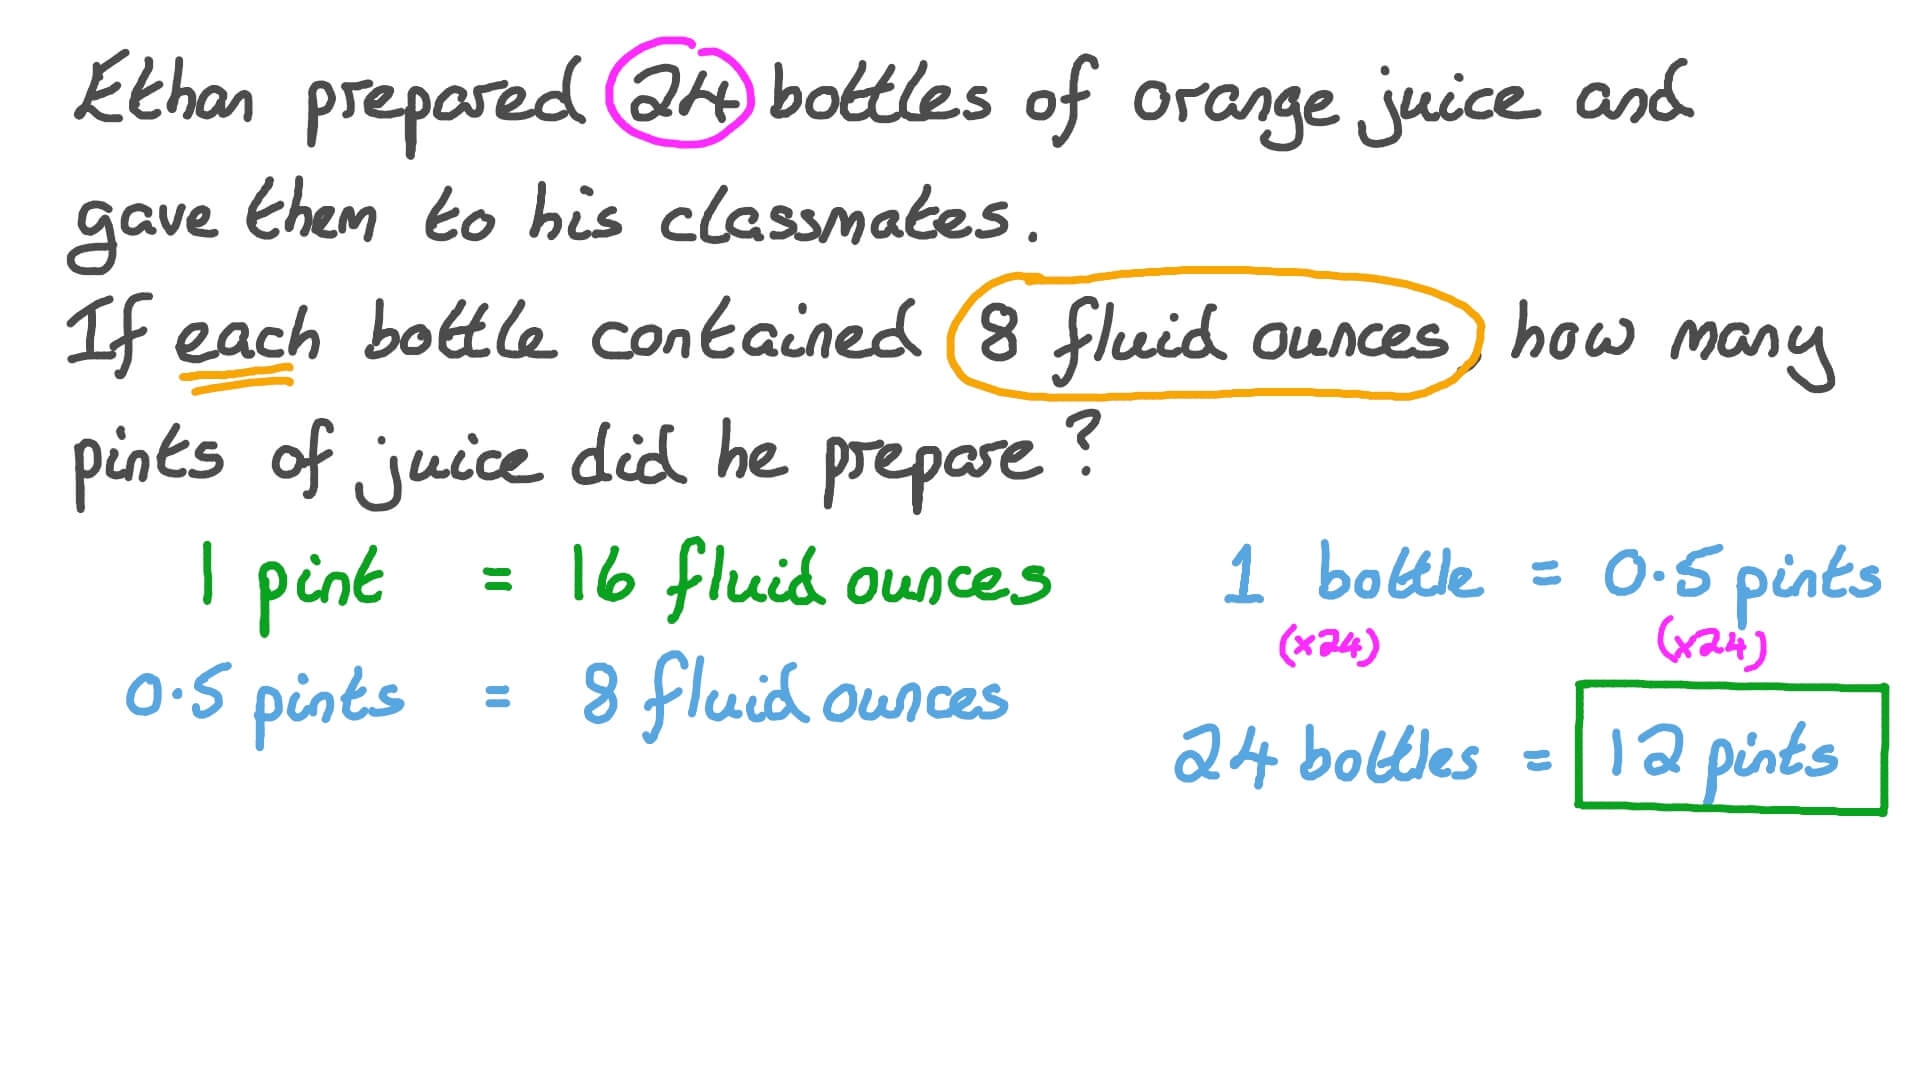 Ethan prepared 24 bottles of orange juice and
gave them to his classmates.
If each bottle contained 8 fluid ounces, how many
pints of juice did he prepare?
1 pint = 16 fluid ounces
0.5 pints = 8 fluid ounces
1 bottle = 0.5 pints
(x24) (x24)
24 bottles = 12 pints